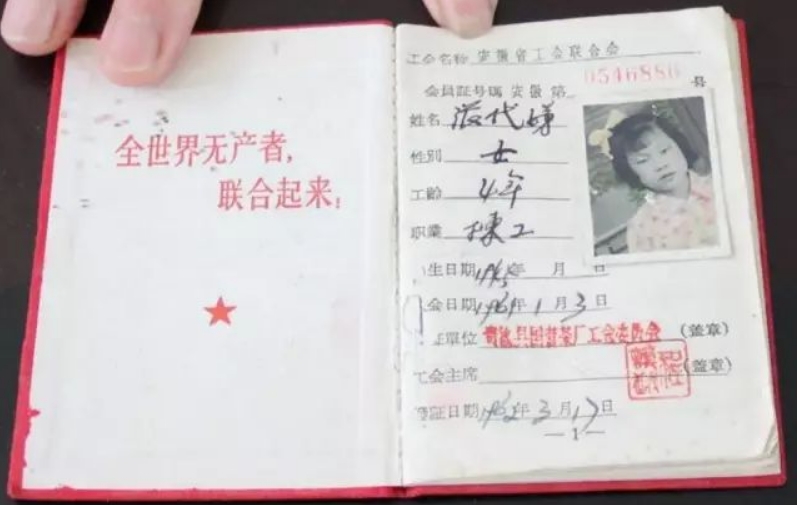 全世界无产者，
联合起来！
工会名称 安徽省工会联合会
会员証号碼 安徽 第 0546880 号
姓名 代
性别 女
工龄 4年
职業 拣工
生日期 年 月 日
会日期 1961年1月3日
証单位 贵池县国营茶厂工会委员会 (盖章)
工会主席 (盖章)
証日期 1962年3月17日
—1—